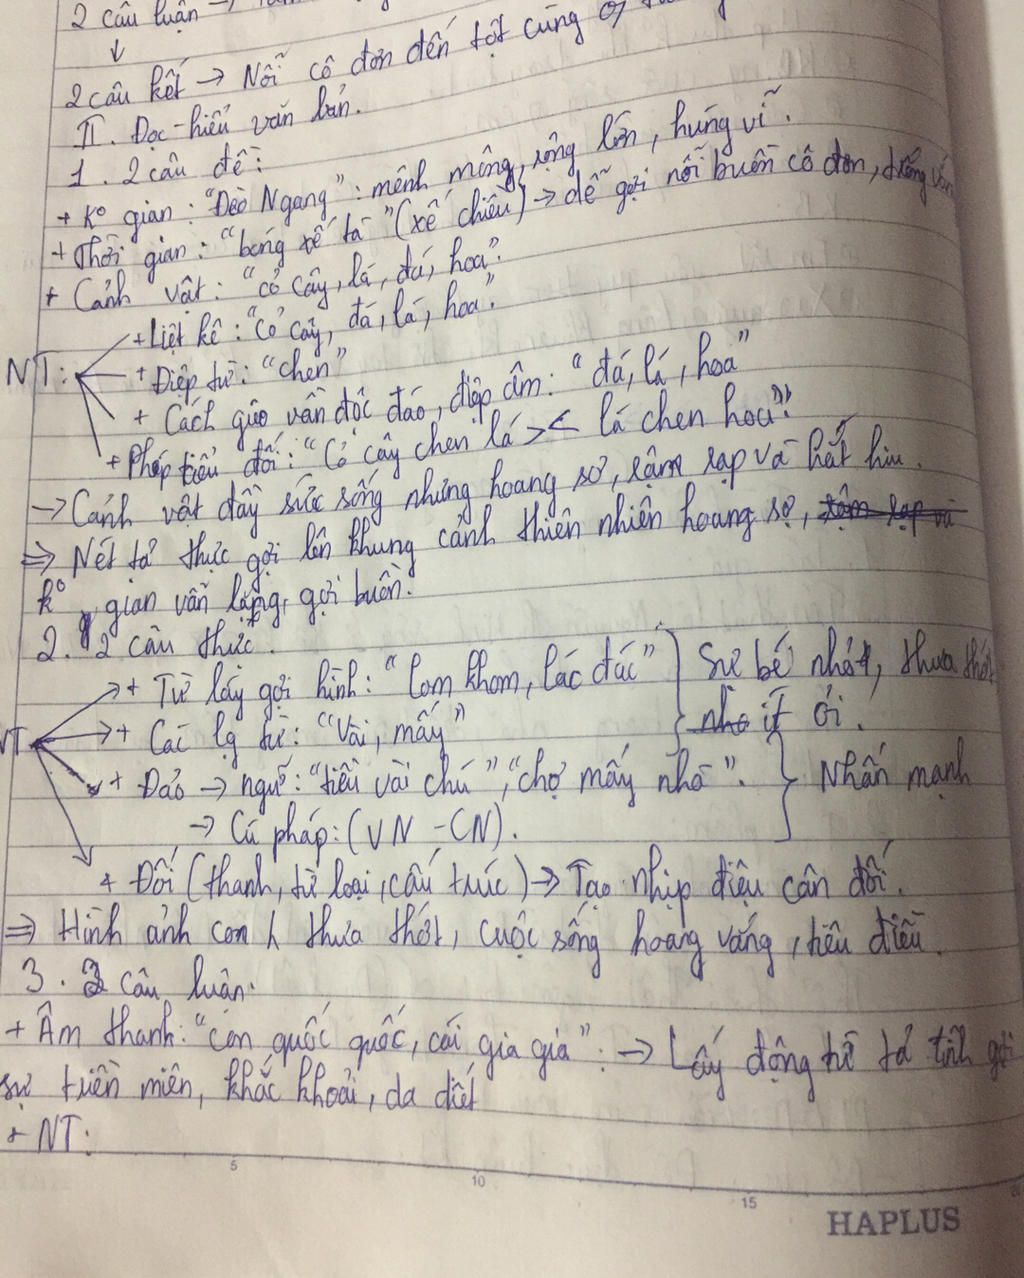 2 câu luận →
↓
2 câu kết → Nỗi cô đơn đến tột cùng of
II. Đọc-hiểu văn bản.
1. 2 câu đề:
+ Kº gian: "Đèo Ngang": mênh mông, rộng lớn, hùng vĩ.
+ Thời gian: "bóng xế tà" (xế chiều) → dễ gợi nỗi buồn cô đơn, trống vắn
+ Cảnh vật: "cỏ cây, lá, đá, hoa".
+ Liệt kê: "Cỏ cây, đá, lá, hoa".
NT: + Điệp từ: "chen"
+ Cách gieo vần độc đáo, điệp âm: "đá, lá, hoa"
+ Phép tiểu đối: "Cỏ cây chen lá >< lá chen hoa".
→ Cảnh vật đầy sức sống nhưng hoang sơ, rậm rạp và hắt hiu.
⇒ Nét tả thực gợi lên khung cảnh thiên nhiên hoang sơ, rậm rạp và
kº gian vắn lặng, gợi buồn.
2. 2 câu thực.
+ Từ láy gợi hình: "Lom khom, lác đác" } Sự bé nhỏ, thưa thớt
NT + Các lg từ: "Vài, mấy" } nho ít ỏi.
+ Đảo → ngữ: "tiều vài chú", "chợ mấy nhà". } Nhấn mạnh
→ Cú pháp: (VN - CN).
+ Đối (thanh, từ loại, cấu trúc) → Tạo nhịp điệu cân đối.
⇒ Hình ảnh con thưa thớt, cuộc sống hoang vắng, tiêu điều.
3. 2 câu luận.
+ Âm thanh: "Con quốc quốc, cái gia gia": → Lấy động từ tả tĩnh gợi
sự triền miên, khắc khoải, da diết
+ NT:
5
10
15
HAPLUS